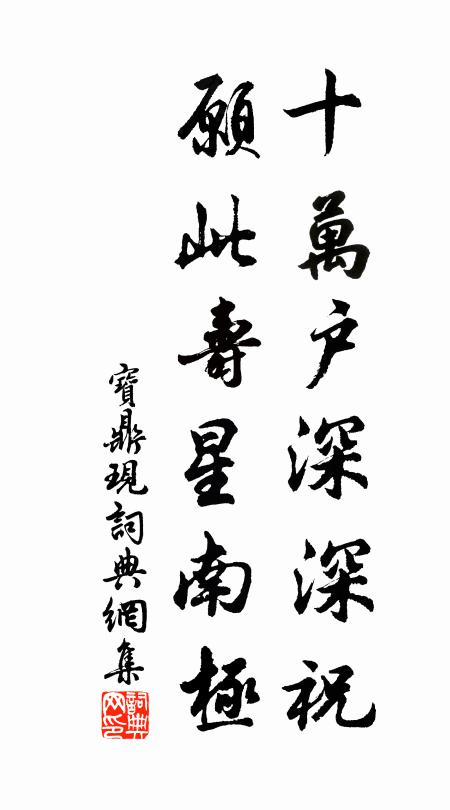 十萬户深深祝
願此壽星南極
寶鼎現詞典網集
詞典网印